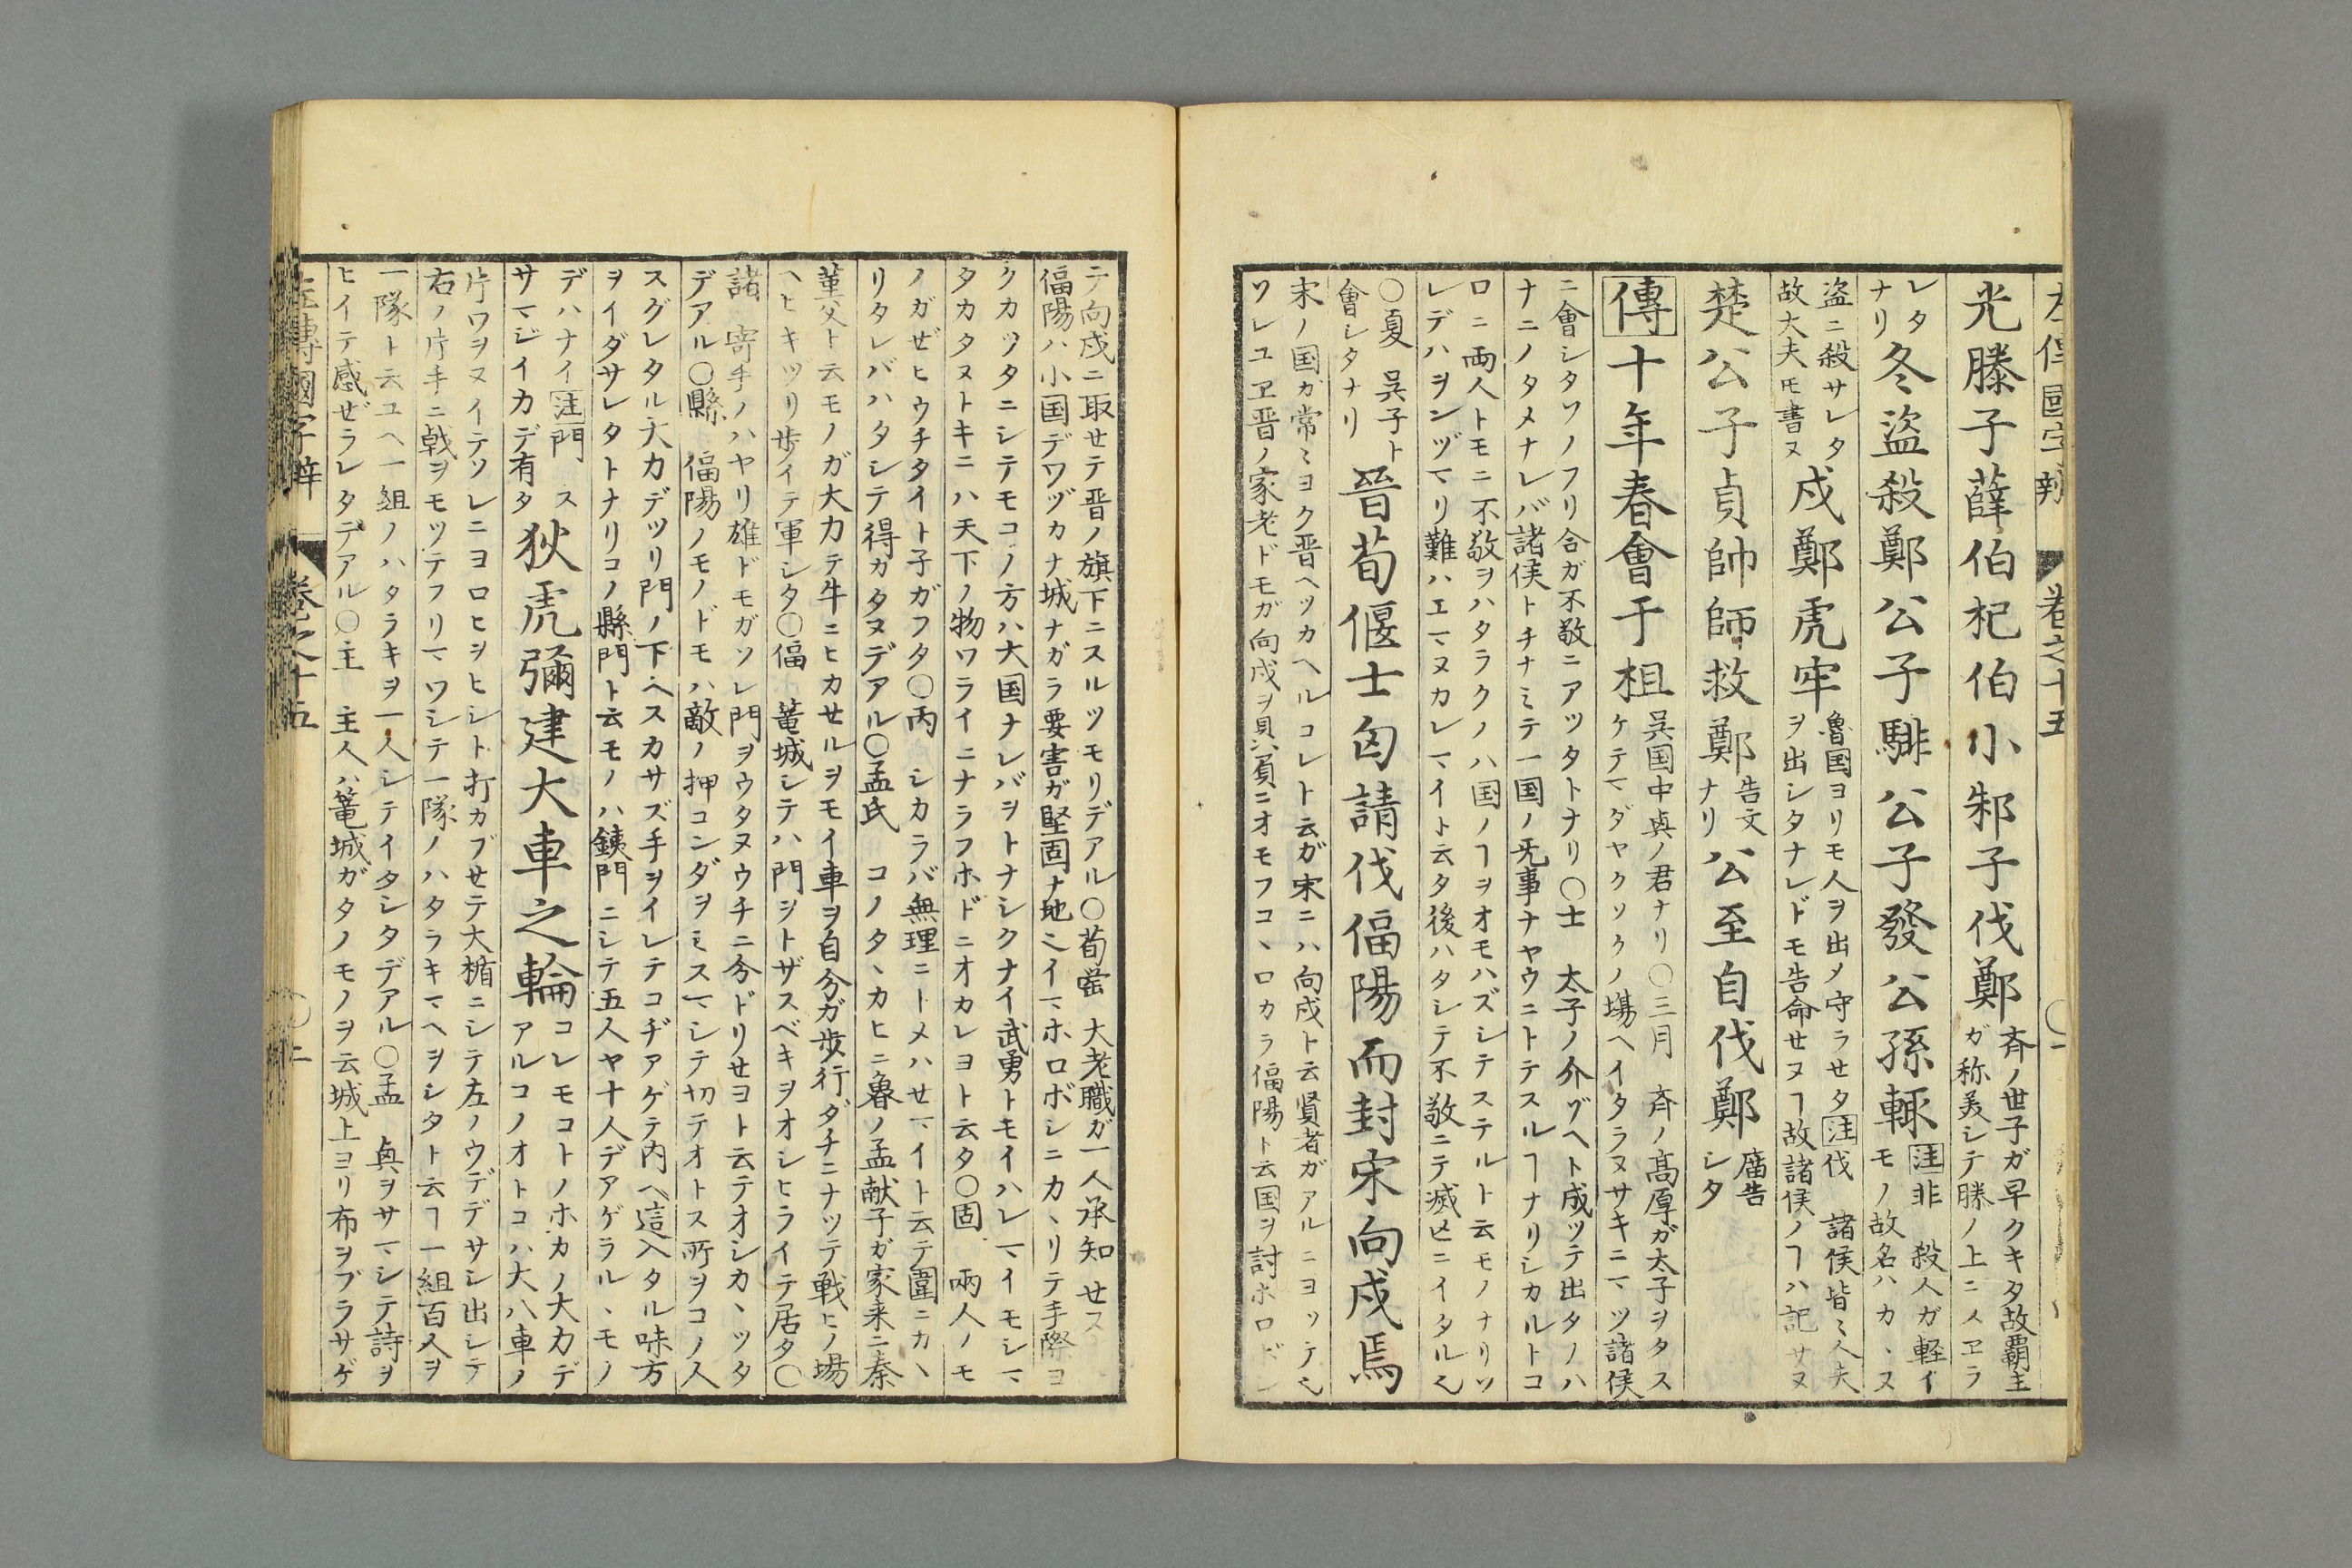 國字辨 卷之十五
光滕子薛伯杞伯小邾子伐鄭
斉ノ世子ガ早クキタ故覇主
ガ称美シテ滕ノ上ニスヱラ
レタ
ナリ
冬盜殺鄭公子騑公子發公孫輒
注非 殺人ガ軽イ
モノ故名ハカヽヌ
盗ニ殺サレタ
故大夫モ書ヌ
戍鄭虎牢
魯国ヨリモ人ヲ出メ守ラセタ注伐 諸侯皆〻人夫
ヲ出シタナレドモ告命セヌヿ故諸侯ノヿハ記サヌ
楚公子貞帥師救鄭
告文
ナリ
公至自伐鄭
廟告
シタ
傳十年春會于柤
呉国中夷ノ君ナリ○三月 斉ノ高厚ガ太子ヲタス
ケテマダヤクソクノ場ヘイタラヌサキニマツ諸侯
ニ會シタソノフリ合ガ不敬ニアツタトナリ○士 太子ノ介ゾヘト成ツテ出タノハ
ナニノタメナレバ諸侯トチナミテ一国ノ无事ナヤウニトテスルヿナリシカルトコ
ロニ両人トモニ不敬ヲハタラクノハ国ノヿヲオモハズシテステルト云モノナリソ
レデハヲンヅマリ難ハエマヌカレマイト云タ後ハタシテ不敬ニテ滅亡ニイタル也
○夏 呉子ト
會シタナリ
晉荀偃士匄請伐偪陽而封宋向戌焉
宋ノ国ガ常〻ヨク晋ヘツカヘルコレト云ガ宋ニハ向戌ト云賢者ガアルニヨツテ也
ソレユヱ晋ノ家老ドモガ向戌ヲ貝ニオモフコヽロカラ偪陽ト云国ヲ討ホロボシ
テ向戌ニ取セテ晋ノ旗下ニスルツモリデアル○荀罃 大老職ガ一人承知セヌ
偪陽ハ小国デワヅカナ城ナガラ要害ガ堅固ナ地也イマホロボシニカヽリテ手際ヨ
クカツタニシテモコノ方ハ大国ナレバヲトナシクナイ武勇トモイハレマイモシマ
タカタヌトキニハ天下ノ物ワライニナラフホドニオカレヨト云タ○固 兩人ノモ
ノガゼヒウチタイト子ガフタ○丙 シカラバ無理ニトメハセマイト云テ圍ニカヽ
リタレバハタシテ得カタヌデアル○孟氏 コノタヽカヒニ魯ノ孟献子ガ家来ニ秦
菫父ト云モノガ大力テ牛ニヒカセルヲモイ車ヲ自分ガ歩行ダチニナツテ戦ヒノ場
ヘヒキヅリ歩イテ軍シタ○偪 篭城シテハ門ヲトザスベキヲオシヒライテ居タ○
諸 寄手ノハヤリ雄ドモガソレ門ヲウタヌウチニ分ドリセヨト云テオシカヽツタ
デアル○縣 偪陽ノモノドモハ敵ノ押コンダヲミスマシテ切テオトス所ヲコノ人
スグレタル大力デツリ門ノ下ヘスカサズ手ヲイレテコヂアゲテ内ヘ這入タル味方
ヲイダサレタトナリコノ縣門ト云モノハ銕門ニシテ五人ヤ十人デアゲラルヽモノ
デハナイ注門 ス
サマジイカデ有タ
狄虒彌建大車之輪
コレモコトノホカノ大力デ
アルコノオトコハ大八車ノ
片ワヲヌイテソレニヨロヒヲヒシト打カブセテ大楯ニシテ左ノウデデサシ出シテ
右ノ片手ニ戟ヲモツテフリマワシテ一隊ノハタラキマヘヲシタト云ヿ一組百人ヲ
一隊ト云ユヘ一組ノハタラキヲ一人シテイタシタデアル○孟 奥ヲサマシテ詩ヲ
ヒイテ感ゼラレタデアル○主 主人ハ篭城ガタノモノヲ云城上ヨリ布ヲブラサゲ
左傳國字辨 卷之十五 ○二